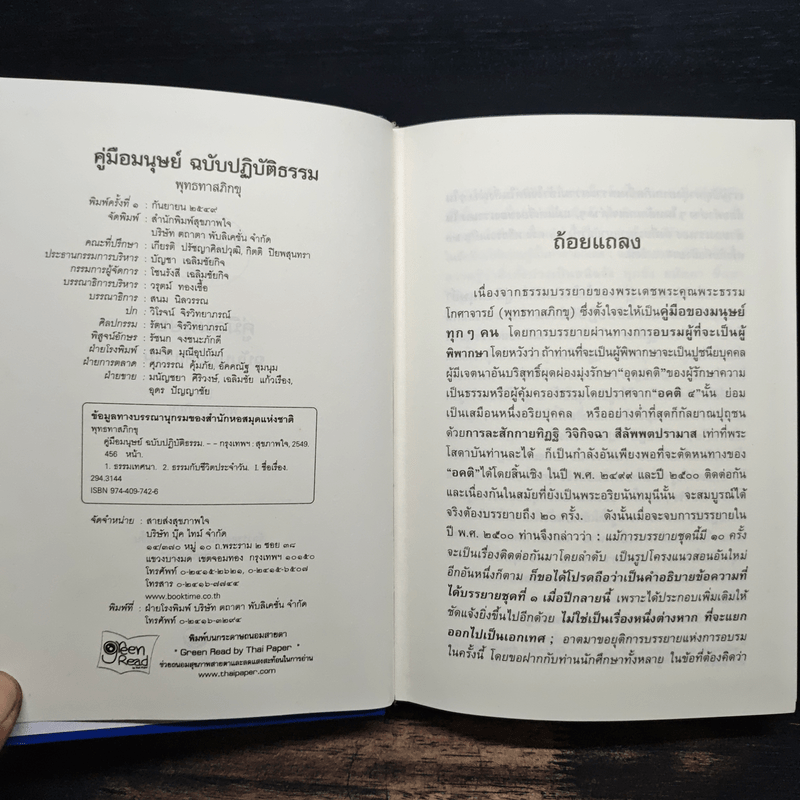 คู่มือมนุษย์ ฉบับปฏิบัติธรรม
พุทธทาสภิกขุ
พิมพ์ครั้งที่ ๑ : กันยายน ๒๕๔๙
จัดพิมพ์ : สำนักพิมพ์สุขภาพใจ
บริษัท ตถาตา พับลิเคชั่น จำกัด
คณะที่ปรึกษา : เกียรติ ปรัชญาศิลปวุฒิ, กิตติ ปิยพสุนทรา
ประธานกรรมการบริหาร : บัญชา เฉลิมชัยกิจ
กรรมการผู้จัดการ : โชนรังสี เฉลิมชัยกิจ
บรรณาธิการบริหาร : วรุตม์ ทองเชื้อ
บรรณาธิการ : สนม นิลวรรณ
ปก : วิโรจน์ จิรวิทยาภรณ์
ศิลปกรรม : รัตนา จิรวิทยาภรณ์
พิสูจน์อักษร : รัชนก จงชนะภักดี
ฝ่ายโรงพิมพ์ : สมจิต มุณีอุปถัมภ์
ฝ่ายการตลาด : ศุภวรรณ คุ้มภัย, อัคคณัฐ ชุมนุม
ฝ่ายขาย : มนัญชยา ศิริวงษ์, เฉลิมชัย แก้วเรือง,
อุดร ปัญญาชัย
ข้อมูลทางบรรณานุกรมของสำนักหอสมุดแห่งชาติ
พุทธทาสภิกขุ
คู่มือมนุษย์ ฉบับปฏิบัติธรรม. - - กรุงเทพฯ : สุขภาพใจ, 2549.
456 หน้า.
1. ธรรมเทศนา. 2. ธรรมกับชีวิตประจำวัน. I. ชื่อเรื่อง.
294.3144
ISBN 974-409-742-6
จัดจำหน่าย : สายส่งสุขภาพใจ
บริษัท บุ๊ค ไทม์ จำกัด
๑๔/๓๗๐ หมู่ ๑๐ ถ.พระราม ๒ ซอย ๓๘
แขวงบางมด เขตจอมทอง กรุงเทพฯ ๑๐๑๕๐
โทรศัพท์ ๐-๒๔๑๕-๒๖๒๑, ๐-๒๔๑๕-๖๕๐๗
โทรสาร ๐-๒๔๑๖-๗๗๔๔
www.booktime.co.th
พิมพ์ที่ : ฝ่ายโรงพิมพ์ บริษัท ตถาตา พับลิเคชั่น จำกัด
โทรศัพท์ ๐-๒๔๑๖-๓๒๙๔
green Read
พิมพ์บนกระดาษถนอมสายตา
" Green Read by Thai Paper "
ช่วยถนอมสุขภาพสายตาและลดแสงสะท้อนในการอ่าน
www.thaipaper.com
ถ้อยแถลง
เนื่องจากธรรมบรรยายของพระเดชพระคุณพระธรรม
โกศาจารย์ (พุทธทาสภิกขุ) ซึ่งตั้งใจจะให้เป็นคู่มือของมนุษย์
ทุกๆ คน โดยการบรรยายผ่านทางการอบรมผู้ที่จะเป็นผู้
พิพากษา โดยหวังว่า ถ้าท่านที่จะเป็นผู้พิพากษาจะเป็นปูชนียบุคคล
ผู้มีเจตนาอันบริสุทธิ์ผุดผ่องมุ่งรักษา"อุดมคติ"ของผู้รักษาความ
เป็นธรรมหรือผู้คุ้มครองธรรมโดยปราศจาก"อคติ ๔"นั้น ย่อม
เป็นเสมือนหนึ่งอริยบุคคล หรืออย่างต่ำที่สุดก็กัลยาณปุถุชน
ด้วยการละสักกายทิฏฐิ วิจิกิจฉา สีลัพพตปรามาส เท่าที่พระ
โสดาบันท่านละได้ ก็เป็นกำลังอันเพียงพอที่จะตัดหนทางของ
"อคติ"ได้โดยสิ้นเชิง ในปี พ.ศ. ๒๔๙๙ และปี ๒๕๐๐ ติดต่อกัน
และเนื่องกันในสมัยที่ยังเป็นพระอริยนันทมุนีนั้น จะสมบูรณ์ได้
จริงต้องบรรยายถึง ๒๐ ครั้ง. ดังนั้นเมื่อจะจบการบรรยายใน
ปี พ.ศ. ๒๕๐๐ ท่านจึงกล่าวว่า ; แม้การบรรยายชุดนี้มี ๑๐ ครั้ง
จะเป็นเรื่องติดต่อกันมาโดยลำดับ เป็นรูปโครงแนวสอนอันใหม่
อีกอันหนึ่งก็ตาม ก็ขอได้โปรดถือว่าเป็นคำอธิบายข้อความที่
ได้บรรยายชุดที่ ๑ เมื่อปีกลายนี้ เพราะได้ประกอบเพิ่มเติมให้
ชัดแจ้งยิ่งขึ้นไปอีกด้วย ไม่ใช่เป็นเรื่องหนึ่งต่างหาก ที่จะแยก
ออกไปเป็นเอกเทศ ; อาตมาขอยุติการบรรยายแห่งการอบรม
ในครั้งนี้ โดยขอฝากกับท่านนักศึกษาทั้งหลาย ในข้อที่ต้องคิดว่า